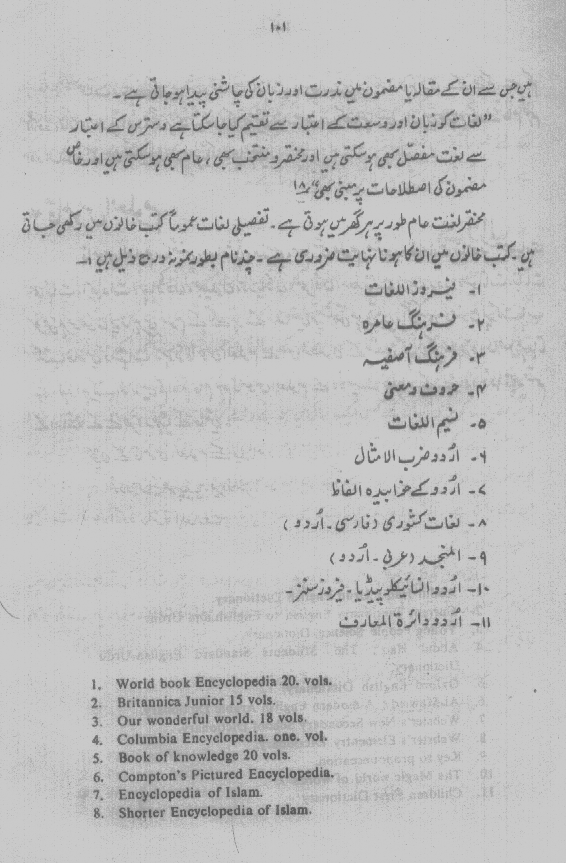 ۱۰۱
ہیں جس سے ان کے مقالہ یا مضمون میں ندرت اور زبان کی چاشنی پیدا ہو جاتی ہے۔
"لغات کو زبان اور وسعت کے اعتبار سے تقسیم کیا جا سکتا ہے دسترس کے اعتبار
سے لغت مفصّل بھی ہو سکتی ہیں اور مختصر و منتخب بھی، عام بھی ہو سکتی ہیں اور خاص
مضمون کی اصطلاحات پر مبنی بھی" ۱۸؎
مختصر لغت عام طور پر ہر گھر میں ہوتی ہے۔ تفصیلی لغات عموماً کتب خانوں میں رکھی جاتی
ہیں۔ کتب خانوں میں ان کا ہونا نہایت ضروری ہے۔ چند نام بطور نمونہ درج ذیل ہیں۔
۱۔ فیروز اللغات
۲۔ فرہنگ عامرہ
۳۔ فرہنگ آصفیہ
۴۔ حروف و معنی
۵۔ نسیم اللغات
۶۔ اُردو ضرب الامثال
۷۔ اُردو کے خوابیدہ الفاظ
۸۔ لغات کشوری (فارسی۔ اُردو)
۹۔ المنجد (عربی۔ اُردو)
۱۰۔ اُردو انسائیکلو پیڈیا۔ فیروز سنز۔
۱۱۔ اُردو دائرۃ المعارف
1. World book Encyclopedia 20. vols.
2. Britannica Junior 15 vols.
3. Our wonderful world. 18 vols.
4. Columbia Encyclopedia. one. vol.
5. Book of knowledge 20 vols.
6. Compton's Pictured Encyclopedia.
7. Encyclopedia of Islam.
8. Shorter Encyclopedia of Islam.